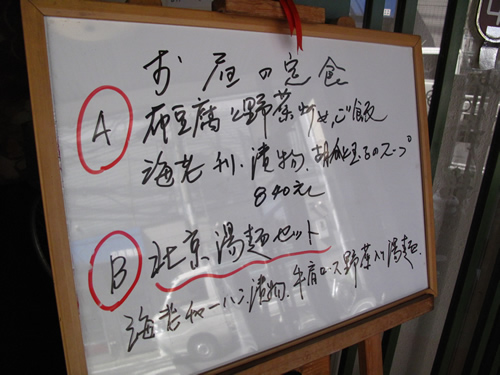 お昼の定食
A
豆腐と野菜 ご飯
海老 漬物、胡瓜と玉子のスープ
840元
B 北京湯麺セット
海老チャーハン、漬物、牛肩ロース野菜入り湯麺